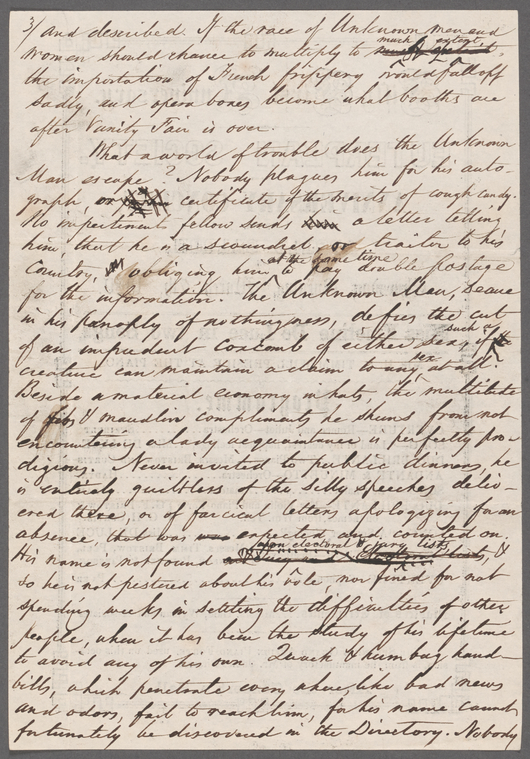 3/ and described. If the race of Unknown men and
women should chance to multiply to much extent,
the importation of French frippery would fall off
sadly, and opera boxes become what booths are
after Vanity Fair is over.
What a world of trouble does the Unknown
Man escape? Nobody plagues him for his auto-
graph or certificate of the merits of cough candy.
No impertinent fellow sends a letter telling
him that he is a scoundrel or traitor to his
Country, obliging him at the same time to pay double postage
for the information. The Unknown Man, secure
in his panoply of nothingness, defies the cut
of an imprudent coxcomb of either sex, if such a
creature can maintain a claim to any sex at all.
Beside a material economy in hats, the multitude
of fibs & maudlin compliments he shuns from not
encountering a lady acquaintance is perfectly pro-
digious. Never invited to public dinners, he
is entirely guiltless of the silly speeches deliv-
ered there, or of farcical letters apologizing for an
absence, that was expected and counted on.
His name is not found upon electoral & jury lists, &
so he is not pestered about his vote, nor fined for not
spending weeks in settling the difficulties of other
people, when it has been the study of his lifetime
to avoid any of his own. Quack & humbug hand-
bills, which penetrate every where, like bad news
and odors, fail to reach him, for his name cannot
fortunately be discovered in the Directory. Nobody